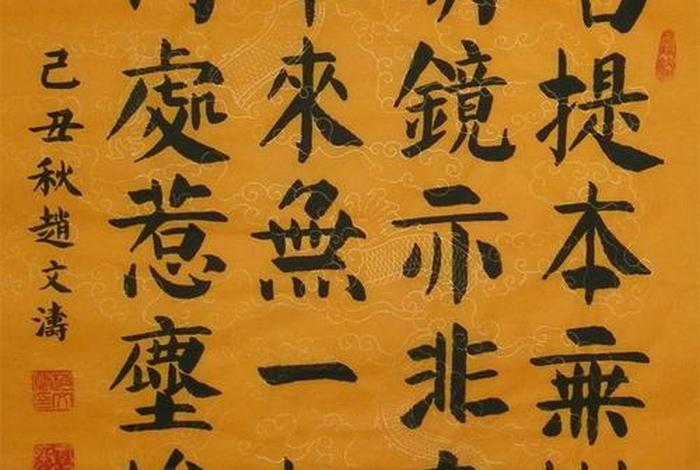 提本無
鏡亦非
來無一
處惹塵
己丑秋趙文濤